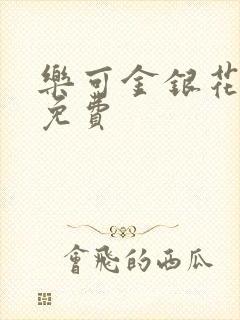 樂可金銀花
免費
會飛的西瓜